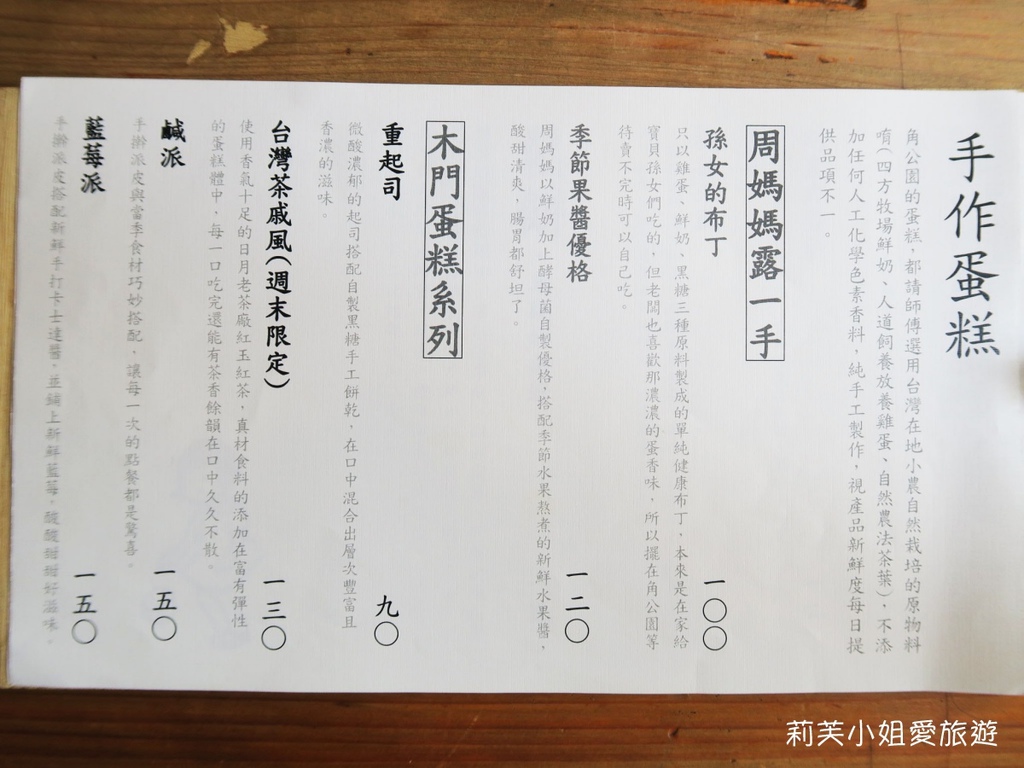 手作蛋糕
角公園的蛋糕，都請師傅選用台灣在地小農自然栽培的原物料
唷（四方牧場鮮奶、人道飼養放養雞蛋、自然農法茶葉），不添
加任何人工化學色素香料，純手工製作，視產品新鮮度每日提
供品項不一。
周媽媽露一手
孫女的布丁 一〇〇
只以雞蛋、鮮奶、黑糖三種原料製成的單純健康布丁，本來是在家給
寶貝孫女們吃的，但老闆也喜歡那濃濃的蛋香味，所以擺在角公園等
待賣不完時可以自己吃。
季節果醬優格 一二〇
周媽媽以鮮奶加上酵母菌自製優格，搭配季節水果熬煮的新鮮水果醬，
酸甜清爽，腸胃都舒坦了。
木門蛋糕系列
重起司 九〇
微酸濃郁的起司搭配自製黑糖手工餅乾，在口中混合出層次豐富且
香濃的滋味。
台灣茶戚風（週末限定） 一三〇
使用香氣十足的日月老茶廠紅玉紅茶，真材食料的添加在富有彈性
的蛋糕體中，每一口吃完還能有茶香餘韻在口中久久不散。
鹹派 一五〇
手擀派皮與當季食材巧妙搭配，讓每一次的點餐都是驚喜。
藍莓派 一五〇
手擀派皮搭配新鮮手打卡士達醬，並鋪上新鮮藍莓，酸酸甜甜好滋味。
莉芙小姐愛旅遊